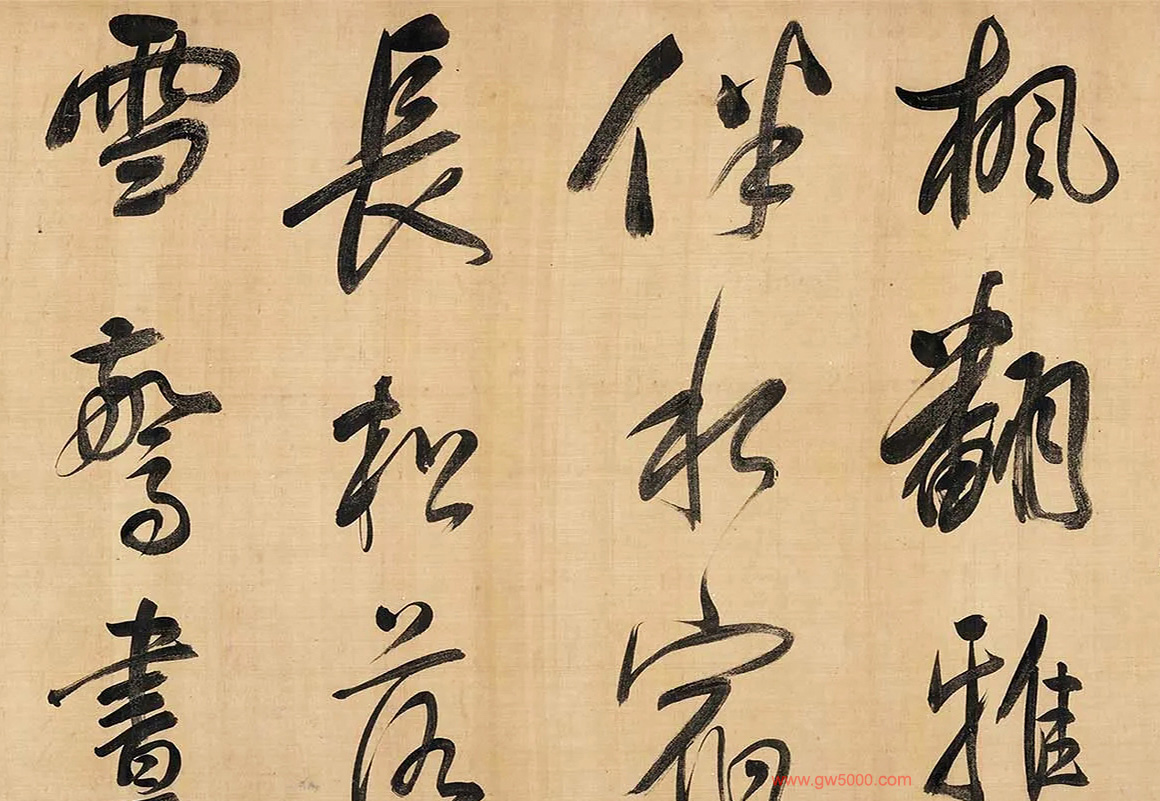 楓翻雅
伴水宿
長松落
雪驚書
www.gw5000.com